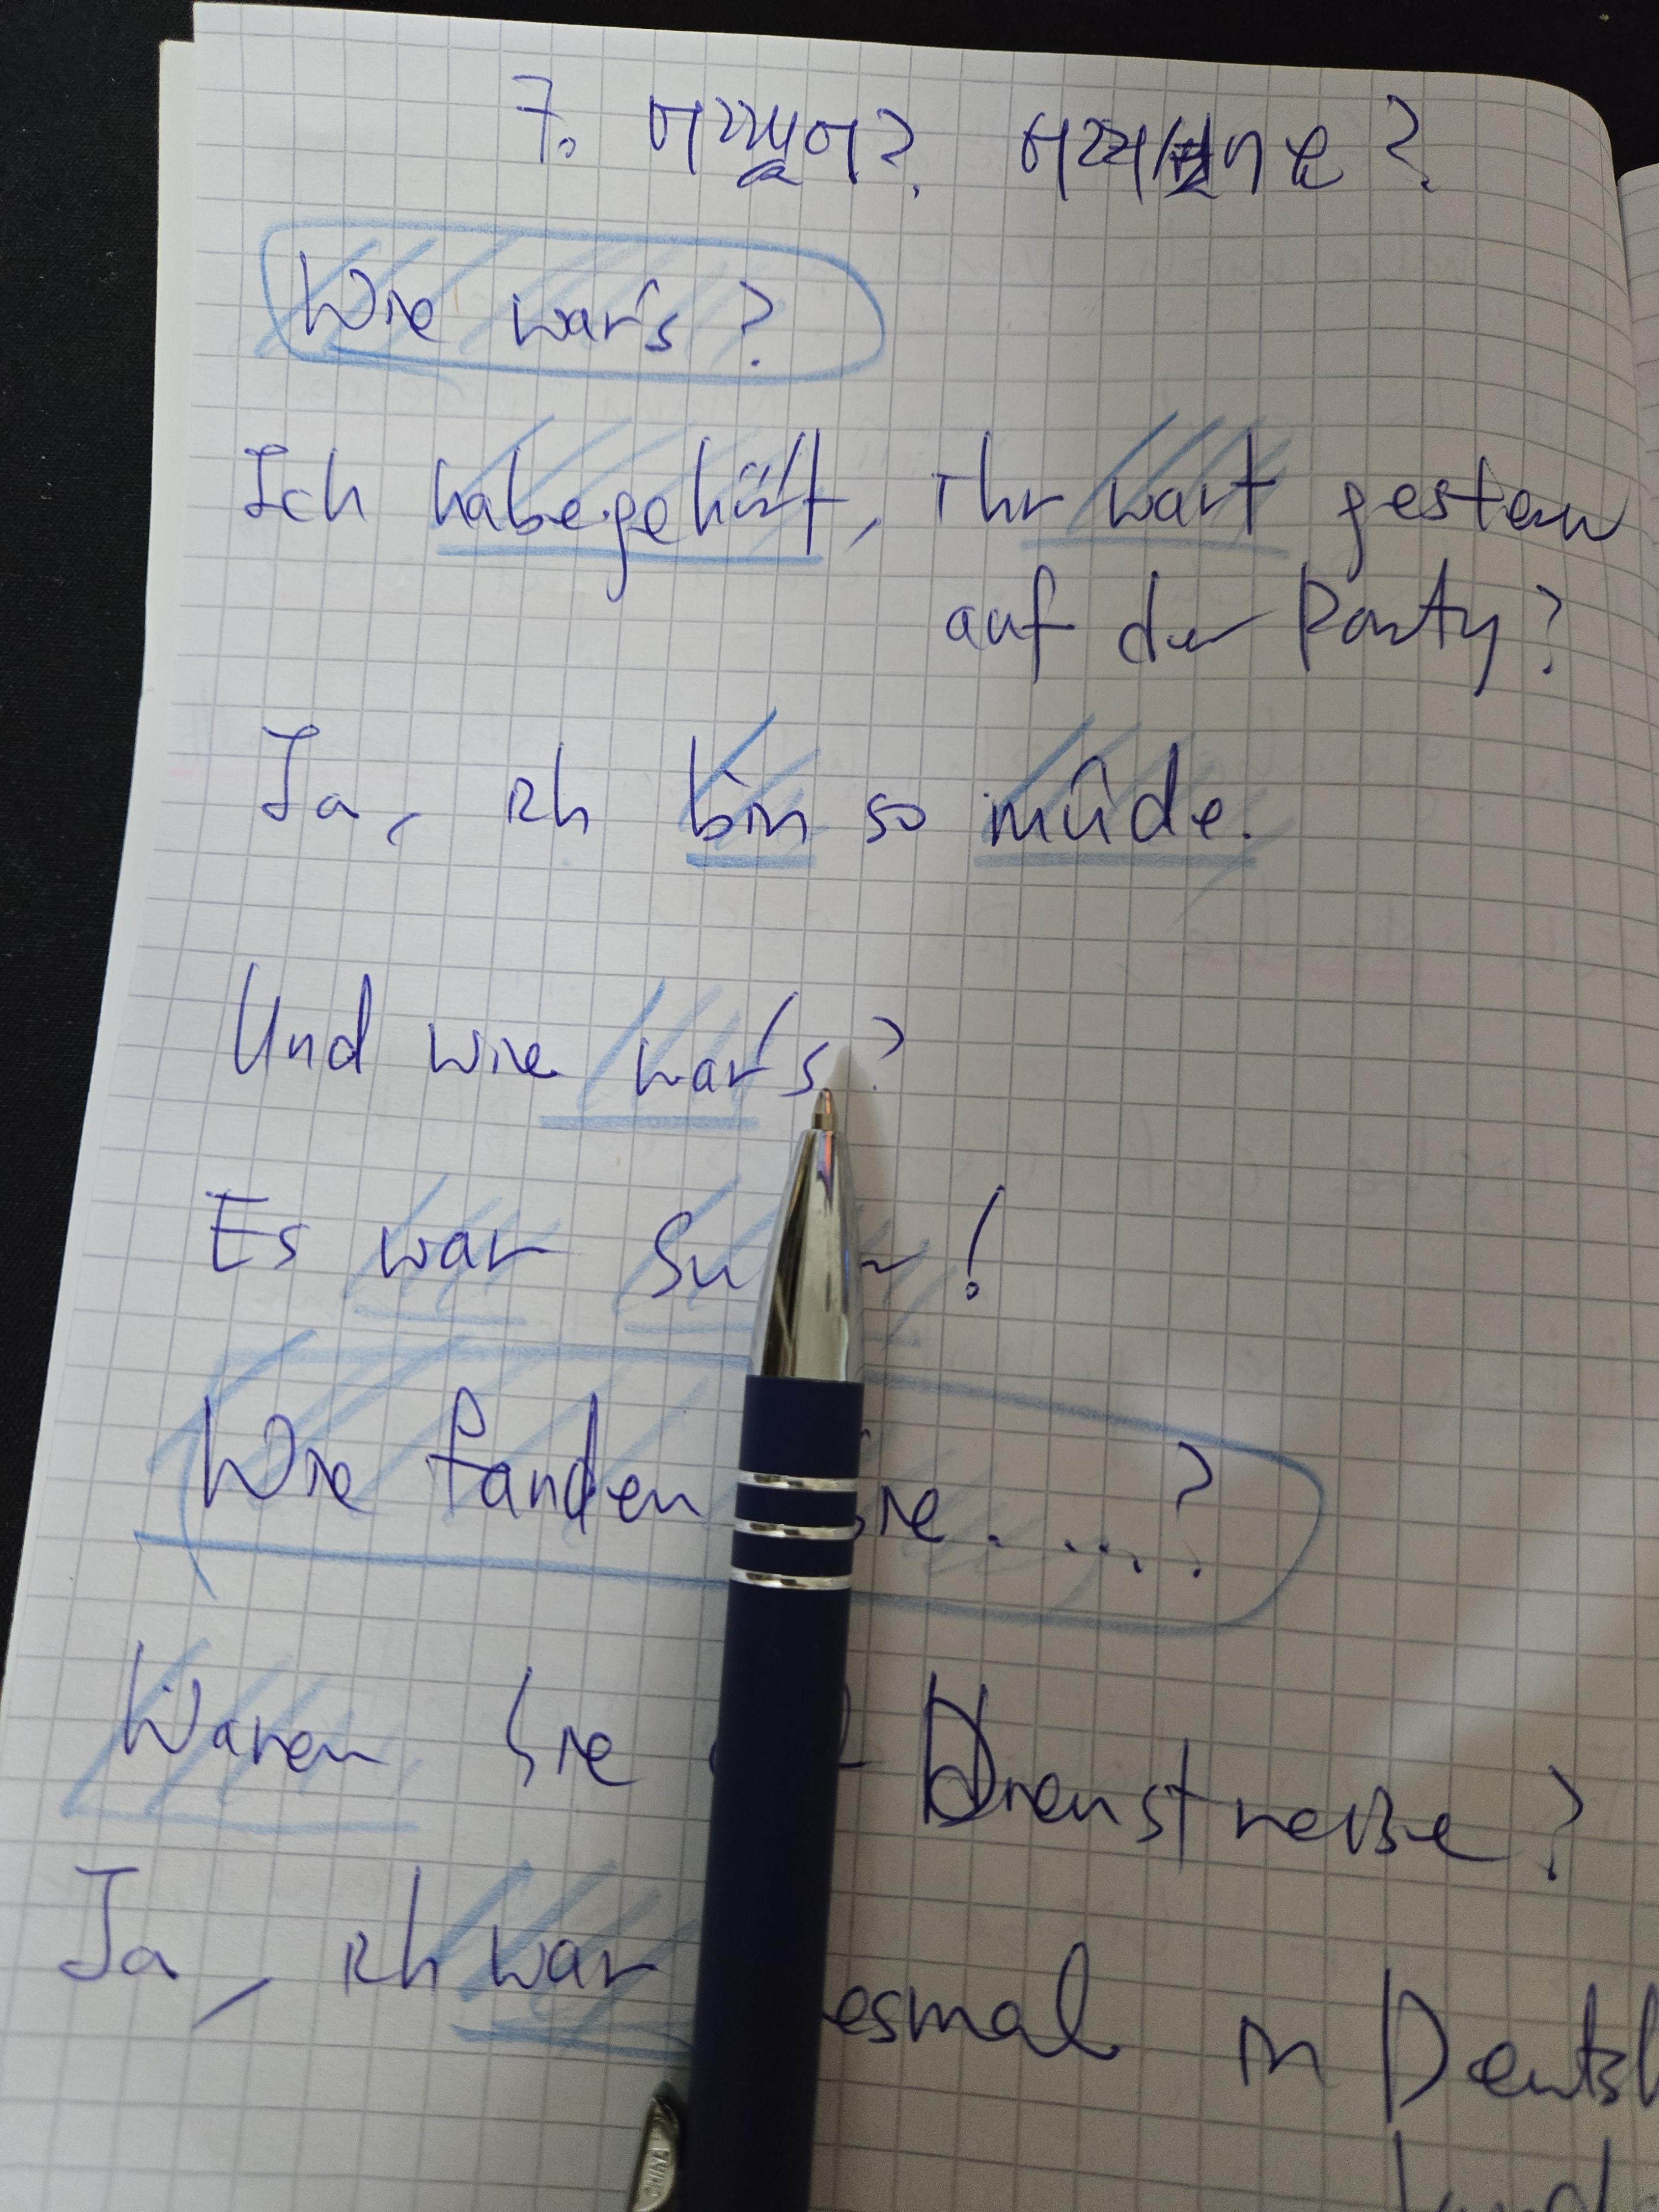 7. 어땠어? 어떠셨어요?
Wie war's?
Ich habe gehört, Ihr wart gestern
auf der Party?
Ja, ich bin so müde.
Und wie war's?
Es war!
Wie fanden Sie....?
Waren Sie Dienstreiße?
Ja, ich war in
CHINA